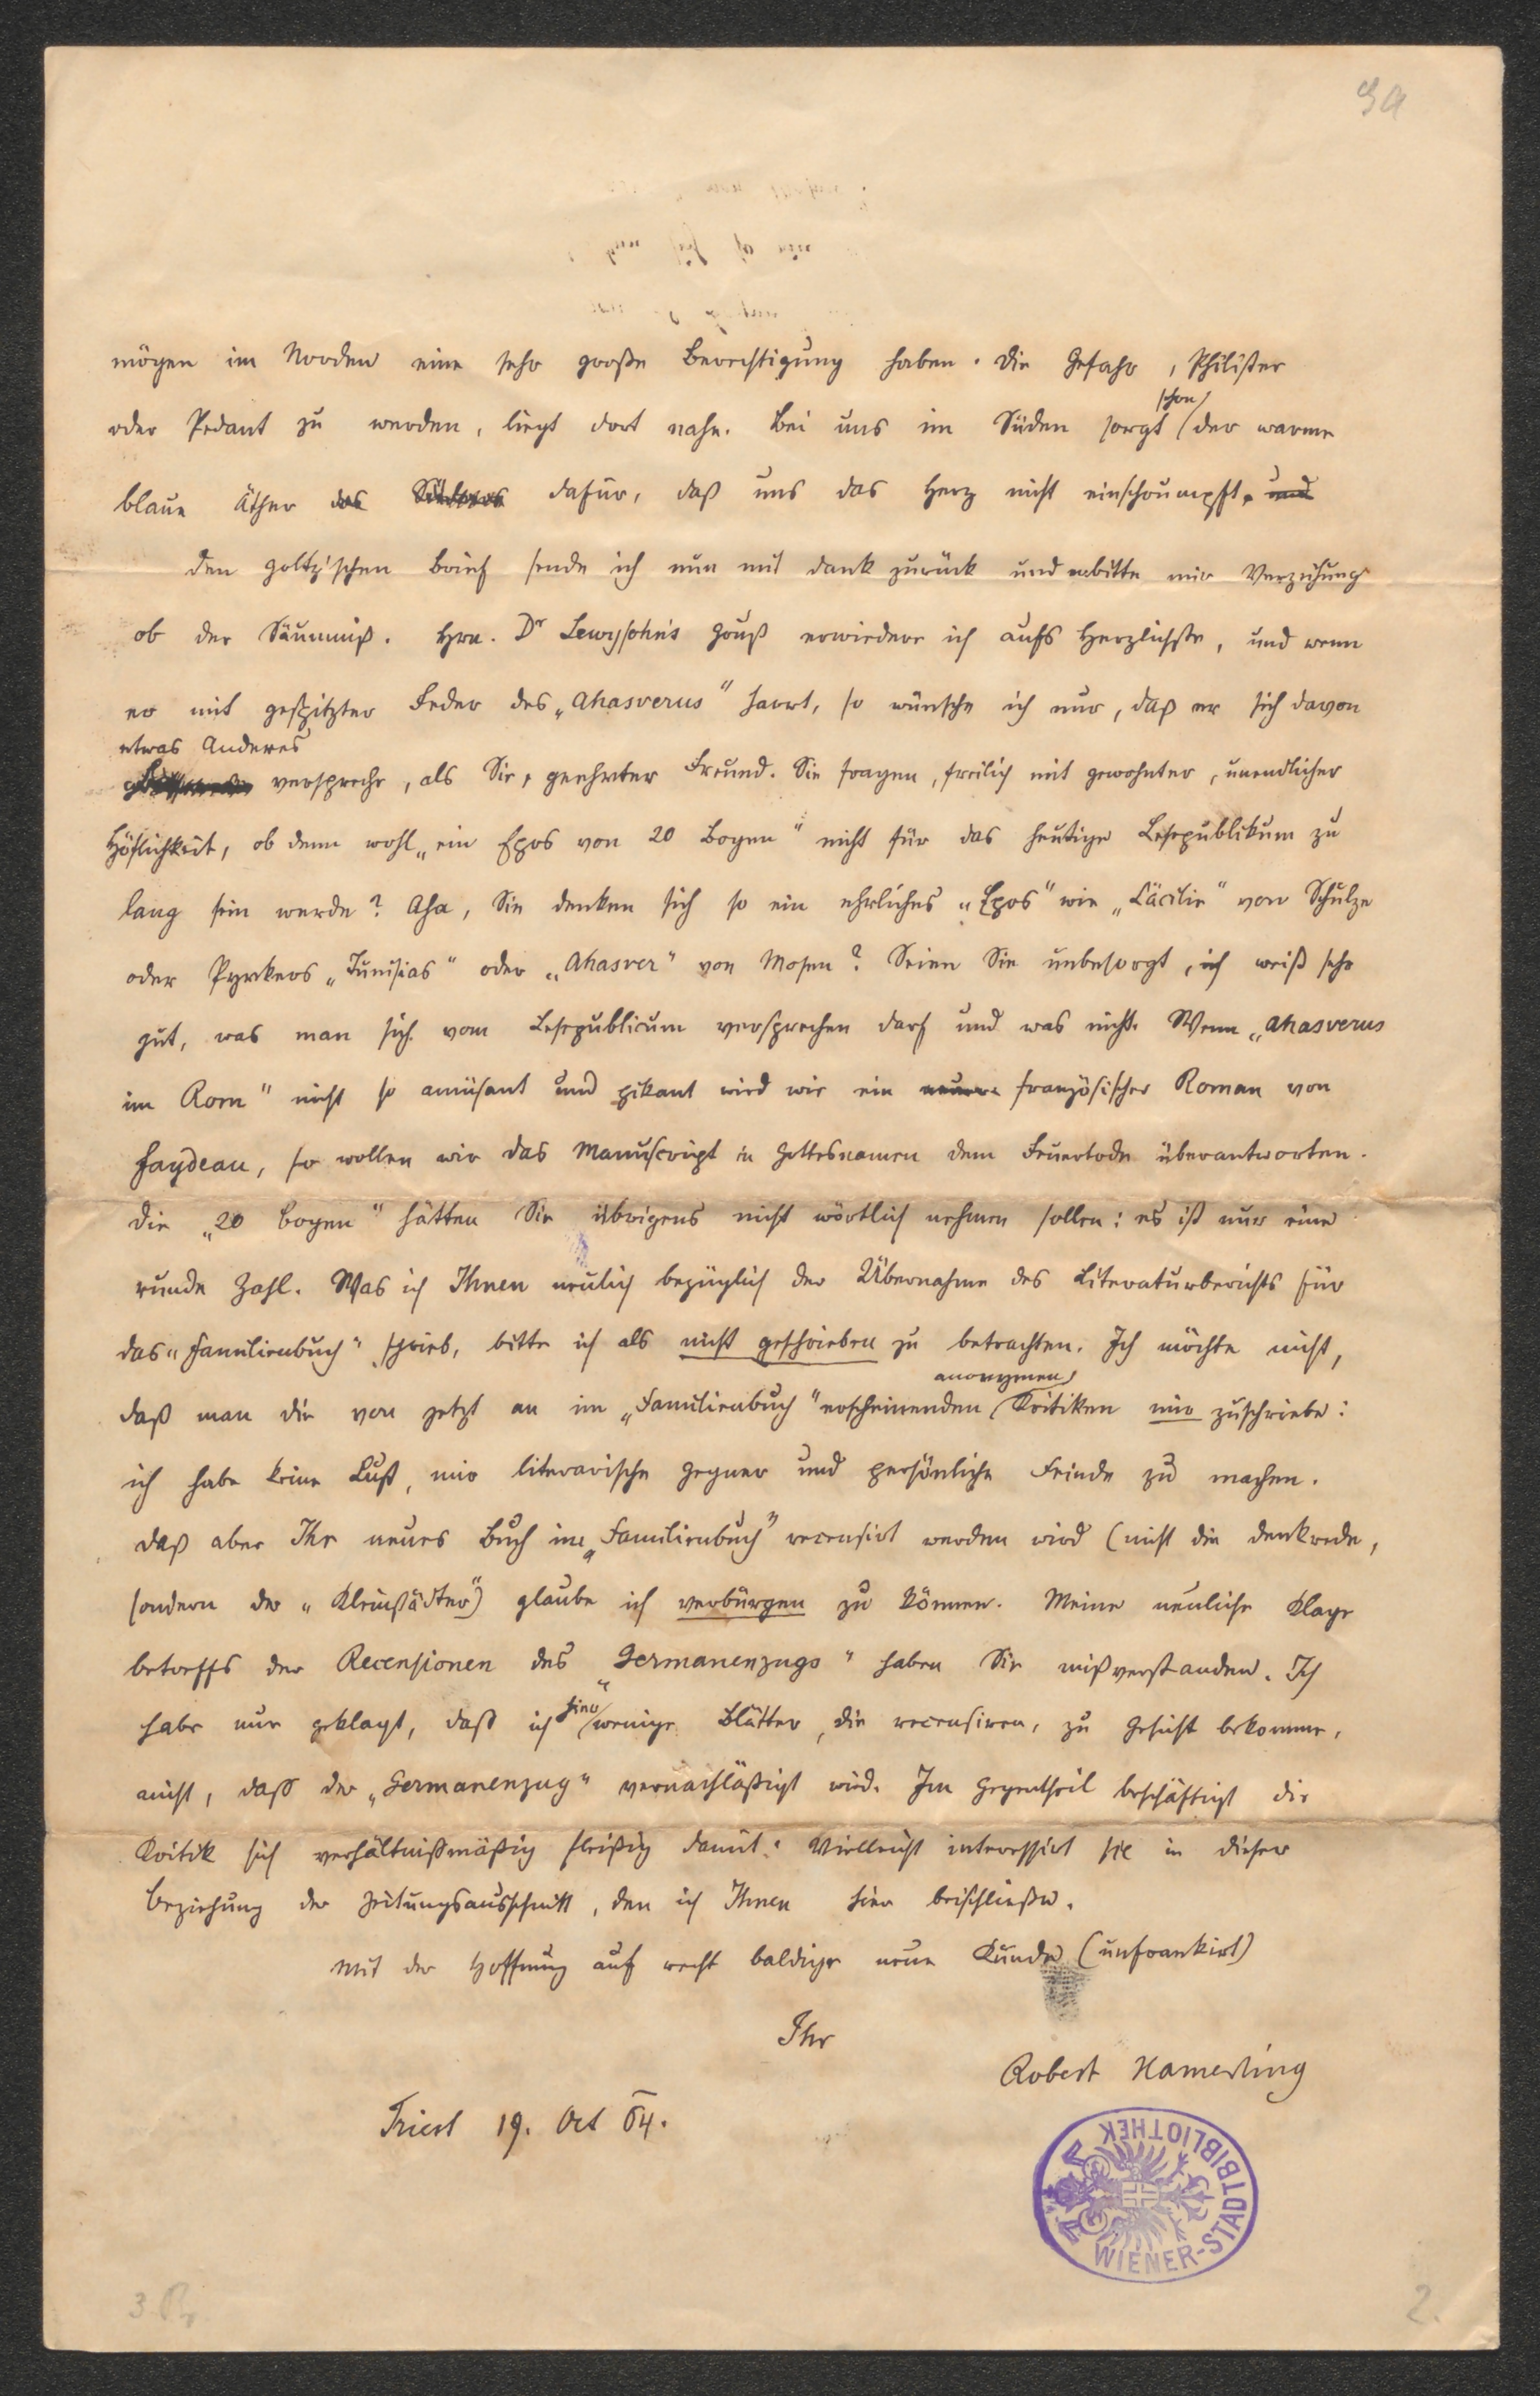 9a
mögen im Norden eine sehr große Berechtigung haben. Die Gefahr, Philister
schon
oder Pedant zu werden, liegt dort nahe. Bei uns im Süden sorgt der warme
blaue Äther des Südens dafür, daß uns das Herz nicht einschrumpft. und
Den Goltz'schen Brief sende ich nun mit Dank zurück und erbitte mir Verzeihung
ob der Säumniß. Hrn. Dr Lewysohn's Gruß erwiedere ich aufs Herzlichste, und wenn
er mit gespitzter Feder des „Ahasverus" harrt, so wünsche ich nur, daß er sich davon
etwas Anderes
verspreche, als Sie, geehrter Freund. Sie fragen, freilich mit gewohnter, unendlicher
Höflichkeit, ob denn wohl „ein Epos von 20 Bogen" nicht für das heutige Lesepublikum zu
lang sein werde? Aha, Sie denken sich so ein ehrliches „Epos" wie „Cäcilie" von Schulze
oder Pyrkers „Tunisias" oder „Ahasver" von Mosen? Seien Sie unbesorgt, ich weiß sehr
gut, was man sich vom Lesepublicum versprechen darf und was nicht. Wenn „Ahasverus
in Rom" nicht so amüsant und pikant wird wie ein neuer französischer Roman von
Faydeau, so wollen wir das Manuscript in Gottesnamen dem Feuertode überantworten.
Die „20 Bogen" hätten Sie übrigens nicht wörtlich nehmen sollen: es ist nur eine
runde Zahl. Was ich Ihnen neulich bezüglich der Übernahme des Literaturberichts für
das „Familienbuch" schrieb, bitte ich als nicht geschrieben zu betrachten. Ich möchte nicht,
anonymen
daß man die von jetzt an im „Familienbuch" erscheinenden Kritiken mir zuschriebe:
ich habe keine Lust, mir literarische Gegner und persönliche Feinde zu machen.
Daß aber Ihr neues Buch im „Familienbuch" recensirt werden wird (nicht die Denkrede,
sondern der „Kleinstädter") glaube ich verbürgen zu können. Meine neuliche Klage
betreffs der Recensionen des „Germanenzugs" haben Sie mißverstanden. Ich
hier
habe nur geklagt, daß ich wenige Blätter, die recensiren, zu Gesicht bekomme,
nicht, daß der „Germanenzug" vernachläßigt wird. Im Gegentheil beschäftigt die
Kritik sich verhältnißmäßig fleißig damit. Vielleicht interessirt sie in dieser
Beziehung der Zeitungsausschnitt, den ich Ihnen hier beischließe.
Mit der Hoffnung auf recht baldige neue Kunde (unfrankirt)
Ihr
Robert Hamerling
Triest 19. Oct 64.
WIENER-STADTBIBLIOTHEK
2.